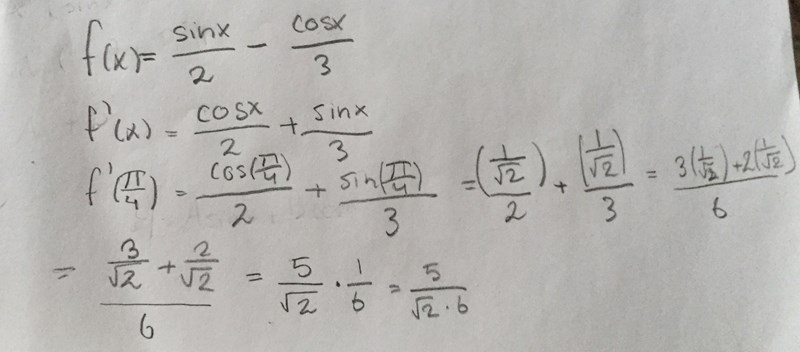 f(x) = sinx/2 − cosx/3
f'(x) = cosx/2 + sinx/3
f'(π/4) = cos(π/4)/2 + sin(π/4)/3 = (1/√2)/2 + (1/√2)/3 = (3(1/√2) + 2(1/√2))/6
= (3/√2 + 2/√2)/6 = 5/√2 · 1/6 = 5/(√2 · 6)